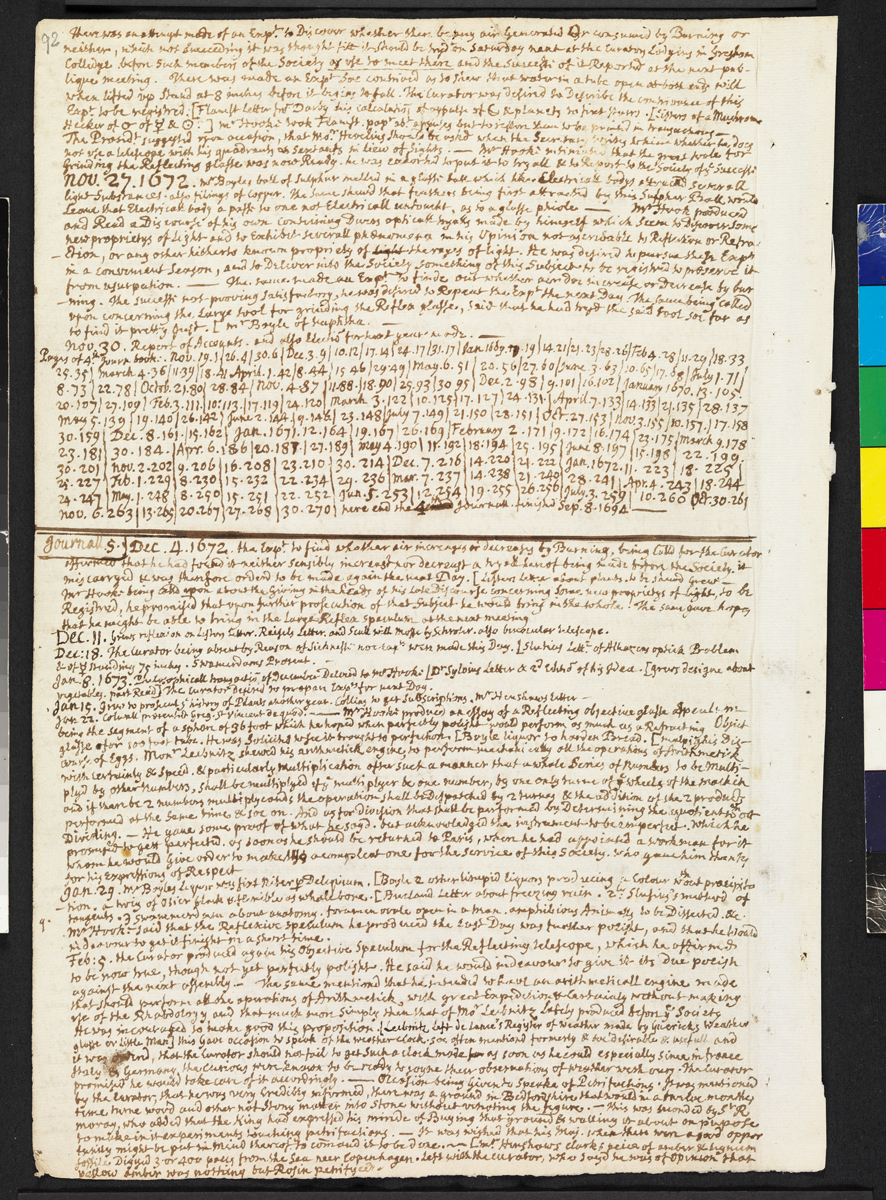 92 There was an attempt made of an Exp.t to Discover whether there be any air Generated or consumed by Burning or
neither, which not succeeding it was thought fitt it should be tryd on Saturday next at the Curators Lodging in Gresham
Colledge before such members of the Society as use to meet there and the Success of it Reported at the next pub-
lique meeting. There was made an Exp.t for contrived as to shew that water in a tube open at both ends will
when lifted up stand at 8 inches before it begins to fall. The Curator was desired to Describe the contrivance of this
Exp.t to be registred. [Flamst Letter fro Darby his calculation of appulse of ☾ & planets to first Stars. [Listers of a Mushrome
Hecker of ☿ & ☉ Mr Hook took Flamst. pap.
The Presid.t suggested upon occasion, that Mo.r Hevelius should be askd what the Secretary write to him whether he does
not use a telescope with his quadrants or Sextants in Liew of Sights. — Mr Hook intimated that the great toole for
Grinding the Reflecting glasse was now Ready. he was exhorted to put it to tryall & to Report to the Society of ye Successe
NOV. 27. 1672. Mr Boyles ball of Sulphur melted in a glasse ball which like Electricall bodys attracts severall
light Substances. also filings of Copper. The same shewd that feathers being first attracted by this Sulphur Ball would
Leave that Electricall body & passe to one not Electricall untought, as to a glasse phiole — Mr Hook produced
and Read a Discourse of his own containing Divers opticall tryals made by himself which seem to discover some
new propriety of Light and to Exhibit severall phænomena in his Opinion not ascribable to Reflection or Refra-
-ction, or any other hitherto known propriety of the rayes of light. He was desired to pursue these Exp.ts
in a convenient Season, and to Deliver into the Society something of this Subject to be registred to preserve it
from usurpation. — The same made an Exp.t to finde out whether air doe increase or decrease by bur
ning. The success not proving Satisfactory, he was desired to Repeat the Exp.t the next Day. The same being called
upon concerning the Large tool for grinding the Reflex glasse, Said that he had tryd the said tool soe far as
to find it pretty Just. [Mr Boyle of Naphtha. —
NOV. 30. Report of Accounts. and also Election for next year made. —
Pages of 4th Journ book: Nov. 19.1|26.4|30.6|Dec.3.9|10.12|17.14|24.17|31.17|Jan. 1669. 19|14.21|21.23|28.26|Feb 4.28|11.29|18.33
25.35|March 4.36|11.39|18.41|April. 1.42|8.44|15.46|29.49|May. 6.51|20.56|27.60|June 3.63|10.65|17.68|July 1.71|
8.73|22.78|Octob. 21.80|28.84|Nov. 4.87|11.88|18.90|25.93|30.95|Dec. 2.98|9.101|16.102|January 1670. 13.105
20.107|27.109|Feb. 3.111|10.113|17.119|24.120|March 3.122|10.125|17.127|24.131|April. 7.133|14.133|21.135|28.137
May 5.139|19.140|26.142|June 2.144|9.146|23.148|July 7.149|21.150|28.151|Oct. 27.153|Nov 3.155|10.157|17.158
30.159|Dec. 8.161|15.162|Jan. 1671. 12.164|19.167|26.169|February 2.171|9.172|16.174|23.175|March 9.178
23.181|30.184|Apr. 6.186|20.187|27.189|May 4.190|11.192|18.194|25.195|June 8.197|15.198|22.199
30.201|Nov. 2.202|9.206|16.208|23.210|30.214|Dec. 7.216|14.220|21.222|Jan. 1672. 11.223|18.225|
25.227|Feb. 1.229|8.230|15.232|22.234|29.236|Mar. 7.237|14.238|21.240|28.241|Apr. 4.243|18.244
24.247|May. 1.248|8.250|15.251|22.252|Jun. 5.253|12.254|19.255|26.256|July. 3.259|10.260|Oct. 30.261
Nov. 6.263|13.265|20.267|27.268|30.270|here end the 4th Journall. finished Sep. 8. 1694 —
Journall 5. Dec. 4. 1672. the Exp.t to find whether air increases or decreases by Burning, being Calld for the Curator
affirmed that he had found it neither sensibly increast nor decreast. a tryall of being made before the Society. it
miscarryd & was therefore orderd to be made again the next Day. [Listers Letter about plants. to be shewd Grew —
Mr Hook being calld upon about the Giving in the heads of his Late Discourse concerning some new proprietys of Light, to be
Registred, he promised that upon further prosecution of that Subject he would bring in the whole. The same gave hopes
that he might be able to bring in the Large Reflex Speculum at the next meeting
Dec. 11. Grews reflexion on Listers Letter. Reisels Letter. and Scull with Mosse by Schroter. also binocular telescope.
Dec: 18. The Curator being absent by Reason of Sicknesse noe exp.ts were made this Day. [Slusius Lett.r of Alhazens optick Problem
Swammerdams Present.
Jan. 8. 1673. Philosophicall transactions of December Deliverd to Mr Hook [Dr Sylvius Letter & 2d Edition of his Idea. [Grews designe about
vegetables. part Read] The Curator desired to prepare Exp.ts for next Day.
Jan. 15. Grew to prosecute ye history of Plants another year. Collins to get Subscriptions. Mr Henshaws Letter —
Jan. 22. Colwall presented Greg. St Vincent de quad. — Mr Hook produced an essay of a Reflecting objective glasse Speculum
being the segment of a sphere of 36 foot which he hoped when perfectly polisht would perform as much as a Refracting Object
glasse for 100 foot tube. He was Sollicited to see it brought to perfection. [Boyle liquor to harden Bread. [Malpighis Dis-
cour. of Eggs. Mon.r Leibnitz shewed his arithmetick engine, to perform mechanically all the operations of Arithmetick
with certainty & speed, & particularly multiplication after such a manner that a whole Series of Numbers to be Multi-
plyd by other Numbers, shall be multiplyed if ye multiplyer be one number, by one only turne of ye wheeles of the machin
and if there be 2 numbers multiplycands the operation shall be dispatched by 2 turnes & the addition of the 2 products
performed at the same time & soe on. And as for division that shall be performed by Determining the quotient
Dividing. — He gave some proof of what he sayd. but acknowledged the instrument to be imperfect. Which he
promised to gett perfected. as soon as he should be returned to Paris, where he had appointed a workman for it
whom he would Give order to make a compleat one for the service of this Society. who gave him thanks
for his expressions of Respect
Jan. 29. Mr Boyles Liquor was first Niter p Deliquium. [Boyle 2 other limpid liquors producing a Colour without precipita
-tion. a twig of Osier black & flexible as whale bone. [Bucland Letter about freezing rain. 2. Slusius's method of
tangents. 3 Swammerdam about anatomy. foramen ovale open in a man. amphibious Animalls to be Disected. &c.
Mr Hook Said that the Reflexive Speculum he produced the Last Day was further polisht, and that he Would
indeavour to get it finisht in a short time.
Feb: 5. the Curator produced again his Objective Speculum for the Reflecting telescope, which he affirmed
to be now true, though not yet perfectly polisht. He said he would indeavour to give it its due polish
against the next assembly — The same mentiond that he intended to have an arithmeticall engine made
that should perform all one operations of Arithmetick, with great Expedition & Certainty without making
use of the Rhabdology and that much more Simply then that of Mo.r Leibnitz Lately produced before ye Society
He was incouraged to make good this proposition. [Leibnitz Left de Lanie's Register of weather made by Guericks Weather
glasse or little Man] this Gave occasion to speak of the weather clock. soe often mentiond formerly & soe desirable & usefull and
it was , that the Curator should not fail to get such a clock made as soon as he could especially Since in France
Italy & Germany the Curious were known to be ready to joyne their observations of weather with ours. The Curator
promised he would take care of it accordingly. — Occasion being Given to speake of Petrifactions. It was mentioned
by the Curator, that he was very Credibly informed, there was a ground in Bedfordshire that would in a twelve moneths
time turne wood and other not Stony matter into Stone without vitiating the figure. — This was seconded by Sr R
Moray, who added that the King had expressed his minde of Buying that ground & walling it about on purpose
to make in it experiments touching petrifactions. — It was wished that his Maj. when there were a good oppor
tunity might be put in mind thereof to command it to be done. — [Mr Henshaws clark; peice of amber & Lignum
fossile Diggd 3 or 400 paces from the Sea neer Copenhagen. Left with the Curator, who sayd he was of opinion that
yellow amber was nothing but Rosin petrifyed.